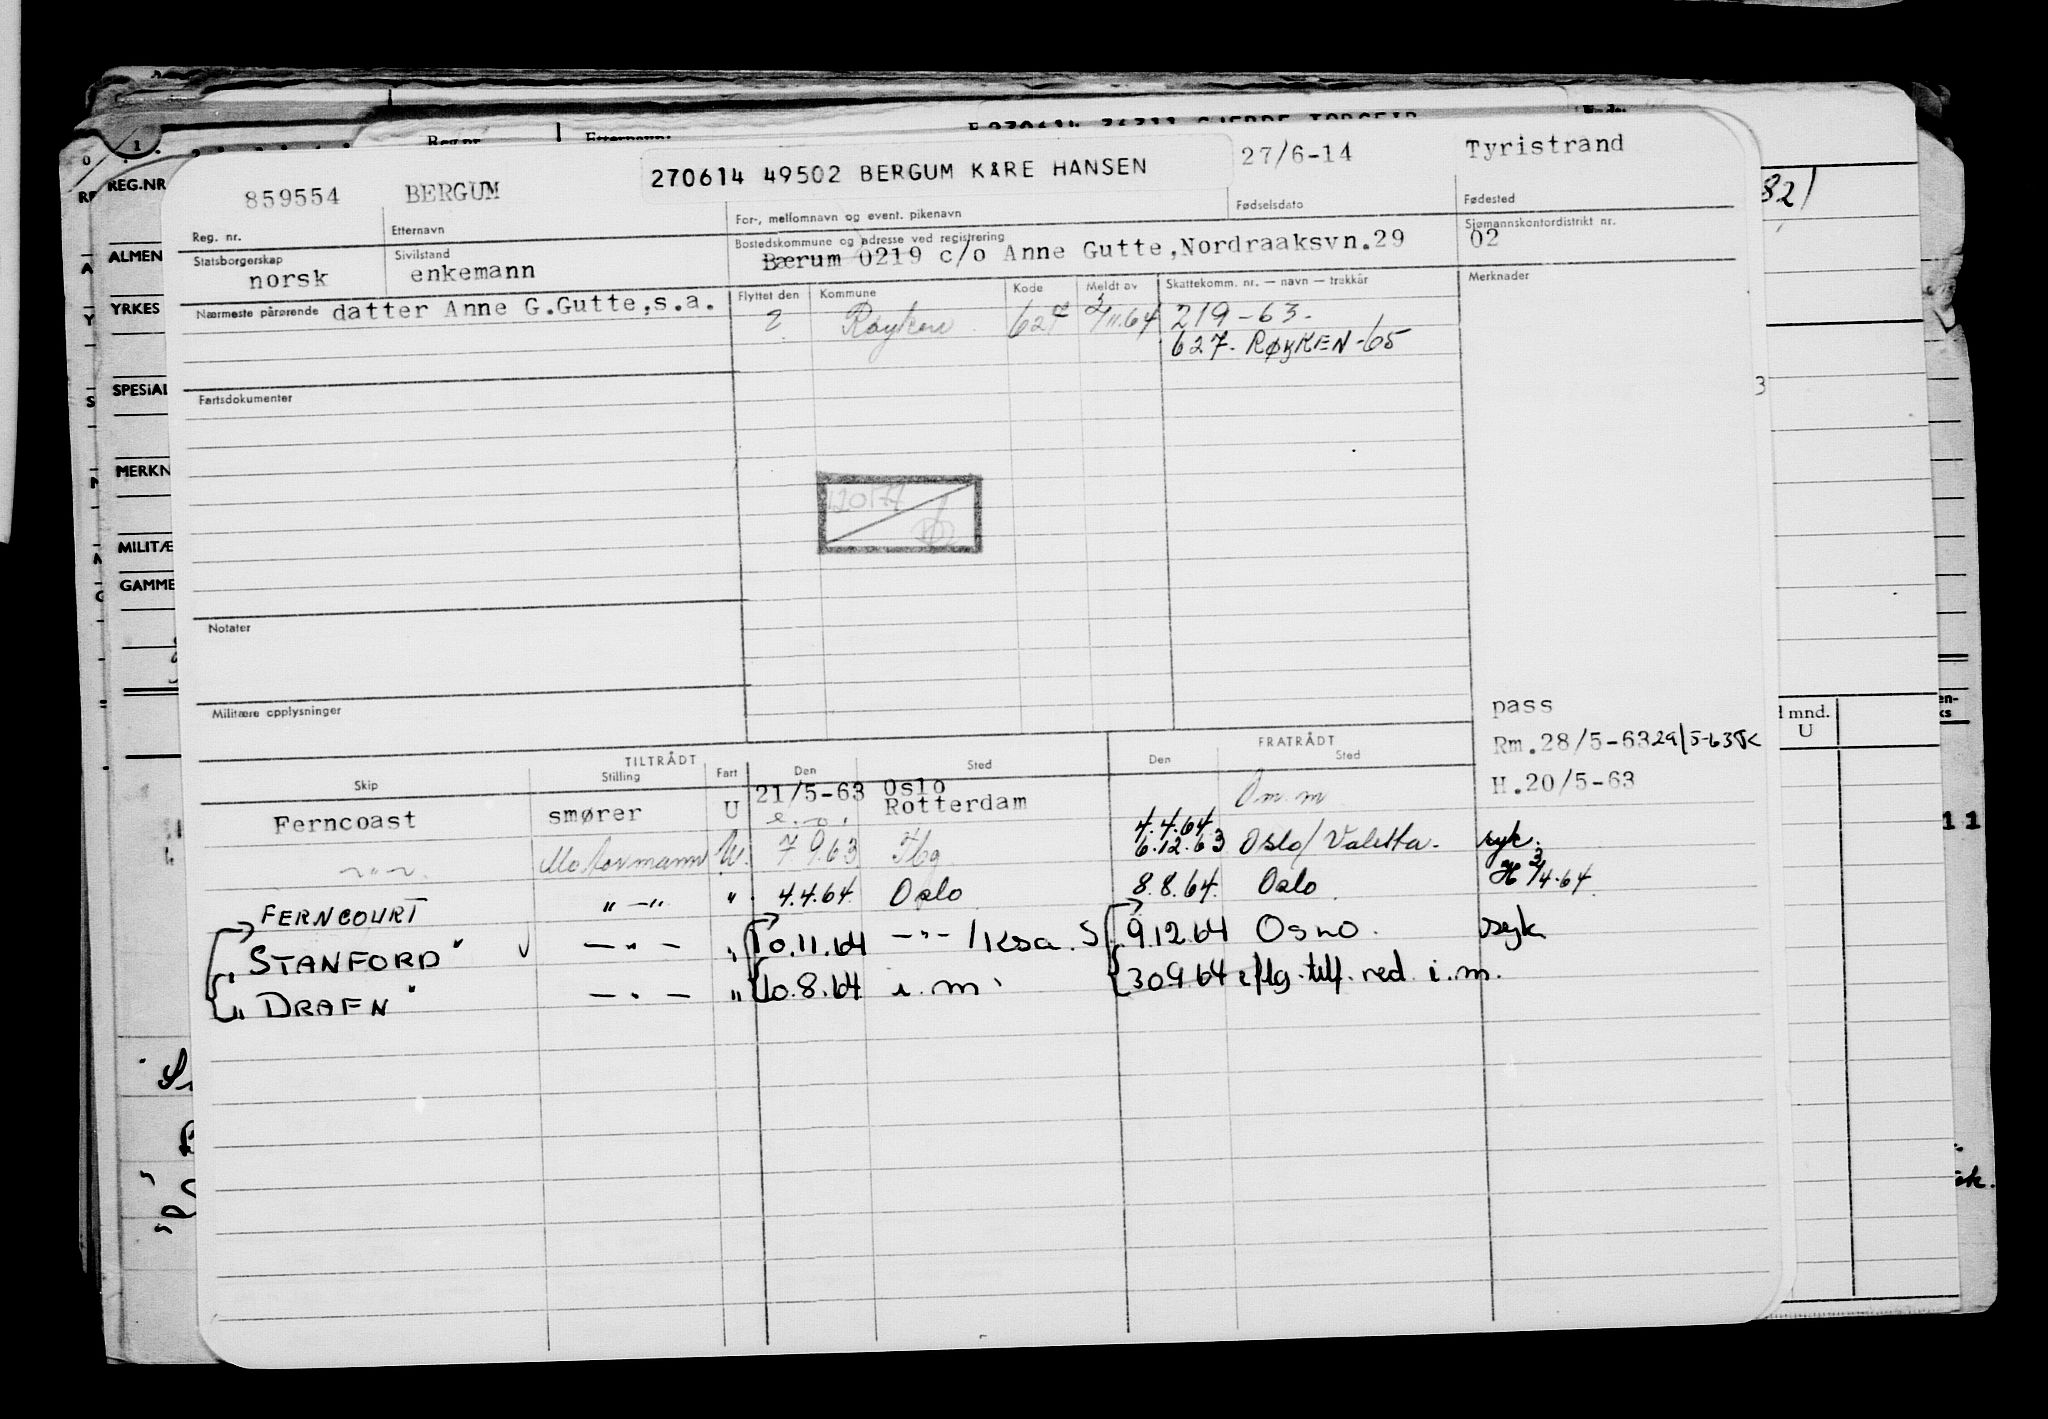 REG.NR
ALMEN
YRKES
SPESIAL
MERKN
MILITÆ
GAMME
859554 BERGUM 270614 49502 BERGUM KÅRE HANSEN 27/6-14 Tyristrand
Reg. nr. Etternavn For-, mellomnavn og event. pikenavn Fødselsdato Fødested
Statsborgerskap Sivilstand Bostedskommune og adresse ved registrering Sjømannskontordistrikt nr.
norsk enkemann Bærum 0219 c/o Anne Gutte,Nordraaksvn.29 02
Nærmeste pårørende datter Anne G.Gutte,s.a. Flyttet den Kommune Kode Meldt av Skattekomm. nr. — navn — trekkår Merknader
Røyken 627 2/11.64 219-63.
627. RØYKEN-65
Fartsdokumenter
Notater
Militære opplysninger
pass
Rm.28/5-63 29/5-63
H.20/5-63
TILTRÅDT FRATRÅDT
Skip Stilling Fart Den Sted Den Sted
Ferncoast smører U 21/5-63 Oslo Rotterdam Om.m
Motormann U. 7.9.63 Hbg 4.4.64 6.12.63 Oslo/Valetta. syk.
FERNCOURT " — " " 4.4.64 Oslo 8.8.64 Oslo H 3/4-64
"STANFORD" — " — " 10.11.64 — " — / 9.12.64 Oslo. syk
"DRAFN" — " — " 10.8.64 i.m. 30.9.64 iflg. telf. red. i.m.
d mnd.
U